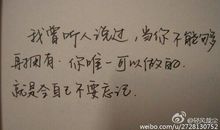 我曾听人说过，当你不能够
再拥有，你唯一可以做的，
就是令自己不要忘记。
@邱风盘尘
weibo.com/u/2728130752